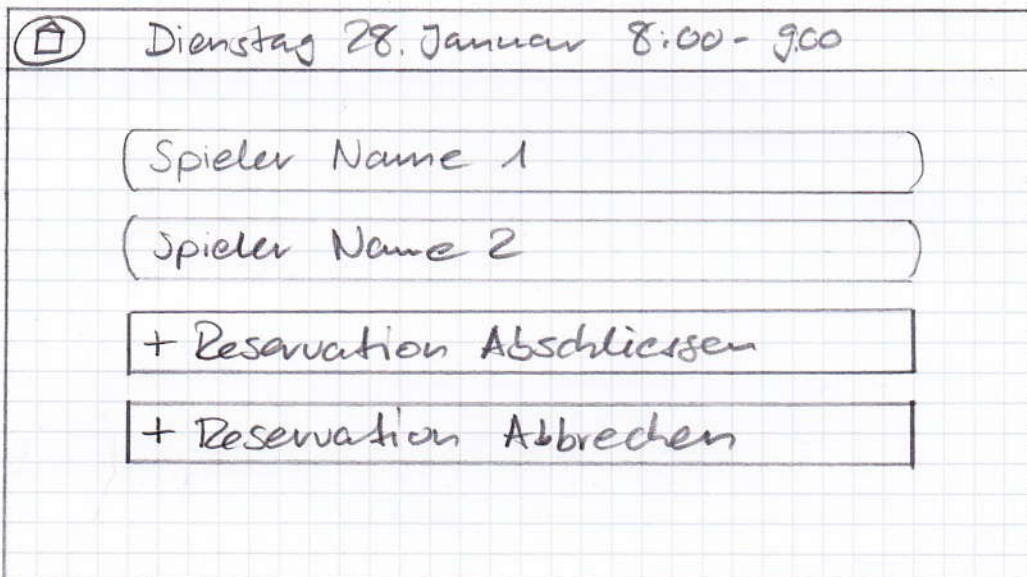 Dienstag 28. Januar 8:00 - 9.00
Spieler Name 1
Spieler Name 2
+ Reservation Abschliessen
+ Reservation Abbrechen